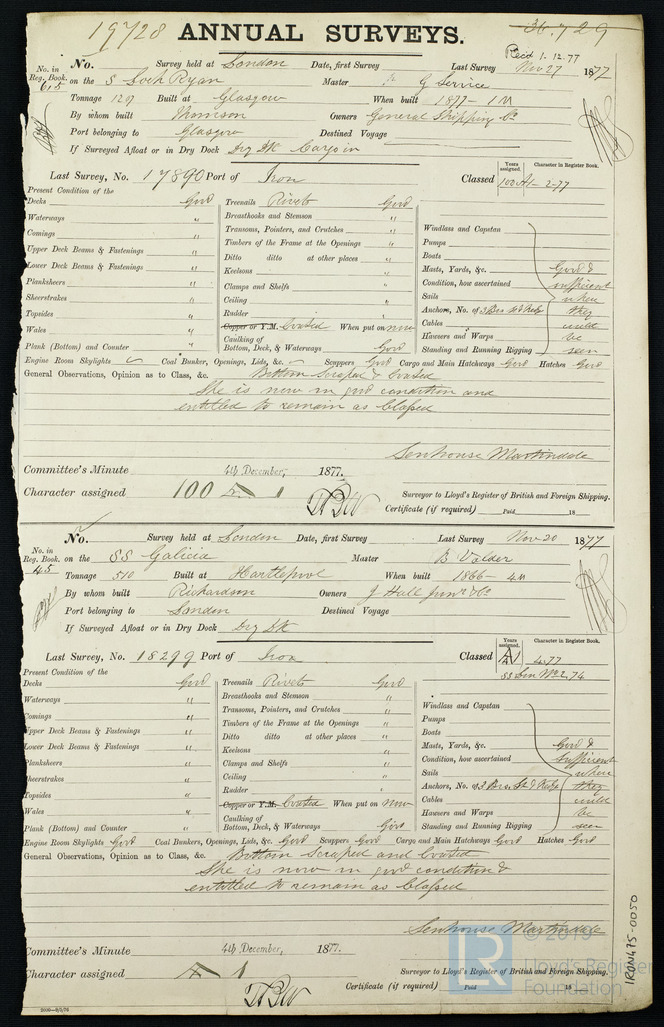 19728 36.729
ANNUAL SURVEYS.
Recd 1-12-77
No. Survey held at London Date, first Survey Last Survey Nov 27 1877
No. in Reg. Book. 615 on the S Loch Ryan Master G Service
Tonnage 1200 Built at Glasgow When built 1877 - 1M
By whom built Thomson Owners General Shipping Co
Port belonging to Glasgow Destined Voyage
If Surveyed Afloat or in Dry Dock Dry Dk Cargo in
Last Survey, No. 17890 Port of Iron Classed 100A1- 2-77
Years assigned. Character in Register Book.
Present Condition of the
Decks Good Treenails Rivets Good
Waterways " Breasthooks and Stemson " Windlass and Capstan
Comings " Transoms, Pointers, and Crutches " Pumps
Upper Deck Beams & Fastenings " Timbers of the Frame at the Openings " Boats
Lower Deck Beams & Fastenings " Ditto ditto at other places " Masts, Yards, &c. Good &
Planksheers " Keelsons " Condition, how ascertained sufficient
Sheerstrakes " Clamps and Shelfs " Sails where
Topsides " Ceiling " Anchors, No. of 3 Brs. St & Kedge they
Wales " Rudder " Cables could
Copper or Y.M. Coated When put on now Hawsers and Warps be
Plank (Bottom) and Counter " Caulking of Bottom, Deck, & Waterways Good Standing and Running Rigging seen
Engine Room Skylights Coal Bunker, Openings, Lids, &c. Scuppers Good Cargo and Main Hatchways Good Hatches Good
General Observations, Opinion as to Class, &c. Bottom Scraped & Coated
She is now in good condition and
entitled to remain as Classed
Senhouse Martindale
Committee's Minute 4th December, 1877.
Character assigned 100 A 1 Surveyor to Lloyd's Register of British and Foreign Shipping.
Certificate (if required) Paid 18
No. Survey held at London Date, first Survey Last Survey Nov 20 1877
No. in Reg. Book. 45 on the SS Galicia Master B Valder
Tonnage 510 Built at Hartlepool When built 1866 - 4M
By whom built Richardson Owners J Hall Junr & Co
Port belonging to London Destined Voyage
If Surveyed Afloat or in Dry Dock Dry Dk
Last Survey, No. 18299 Port of Iron Classed A 4.77
Years assigned. Character in Register Book.
SS Lon No 2.74
Present Condition of the
Decks Good Treenails Rivets Good
Waterways " Breasthooks and Stemson " Windlass and Capstan
Comings " Transoms, Pointers, and Crutches " Pumps
Upper Deck Beams & Fastenings " Timbers of the Frame at the Openings " Boats
Lower Deck Beams & Fastenings " Ditto ditto at other places " Masts, Yards, &c. Good &
Planksheers " Keelsons " Condition, how ascertained sufficient
Sheerstrakes " Clamps and Shelfs " Sails where
Topsides " Ceiling " Anchors, No. of 3 Brs. St & Kedge they
Wales " Rudder " Cables could
Copper or Y.M. Coated When put on now Hawsers and Warps be
Plank (Bottom) and Counter " Caulking of Bottom, Deck, & Waterways Good Standing and Running Rigging seen
Engine Room Skylights Good Coal Bunkers, Openings, Lids, &c. Good Scuppers Good Cargo and Main Hatchways Good Hatches Good
General Observations, Opinion as to Class, &c. Bottom Scraped and Coated
She is now in good condition &
entitled to remain as Classed
Senhouse Martindale
Committee's Minute 4th December, 1877.
Character assigned A 1 Surveyor to Lloyd's Register of British and Foreign Shipping.
Certificate (if required) Paid 18
IRON475-0050
LR © 2019
Lloyd's Register
Foundation